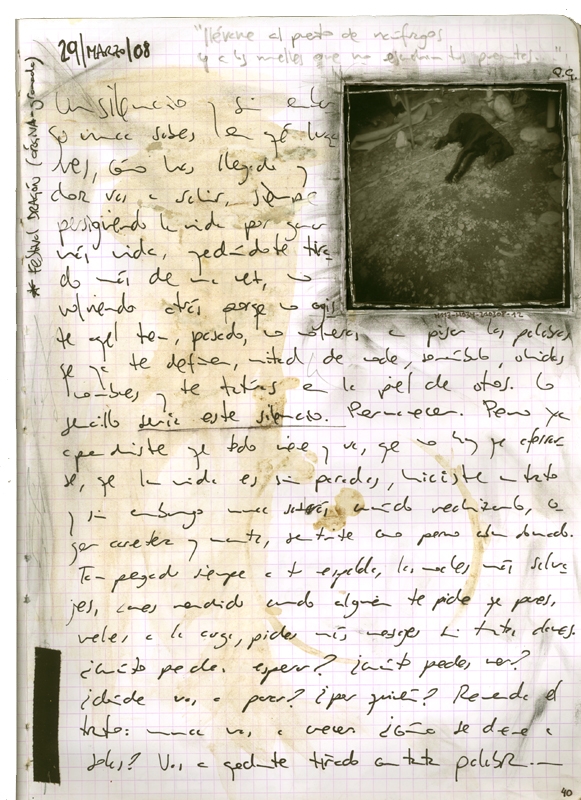 29/MARZO/08
"llévame al puerto de náufragos
y a los muelles que no escuchan los puentes..."
Q.G.
* FESTIVAL DRAGON (ÓRGIVA - granada)
Un silencio y sin embar
go nunca sabes en qué lu
ves, cómo has llegado y
dor vas a salir, siempre
persiguiendo la vida por ganar
más vida, quedándote tira
do más de una vez, no
volviendo atrás porque no
te aquel tren, pasado, no volveras a pisar las palabras
que ya te definen, mitad de nade, olvidas
hombres y te tatúas en la piel de otros. Lo
sencillo sería este silencio. Permanecer. Pero ya
aprendiste que todo viene y va, que no hay que aferrar
se, que la vida es sin paradas, hiciste un trato
y sin embargo nunca rechizando,
ser carretera y manta, sentirte como perro abandonado.
Tan pegado siempre a tu espalda, las noches más salva
jes, caes rendido cuando alguien te pide que pares,
vuelves a la carga, pides más
¿cuánto puedes esperar? ¿cuánto puedes ver?
¿dónde vas a parar? ¿por quién? Recuerda el
trato: nunca vas a crecer ¿cómo se dice a
solas? Vas a quedarte tirado con tanta palabra...
40